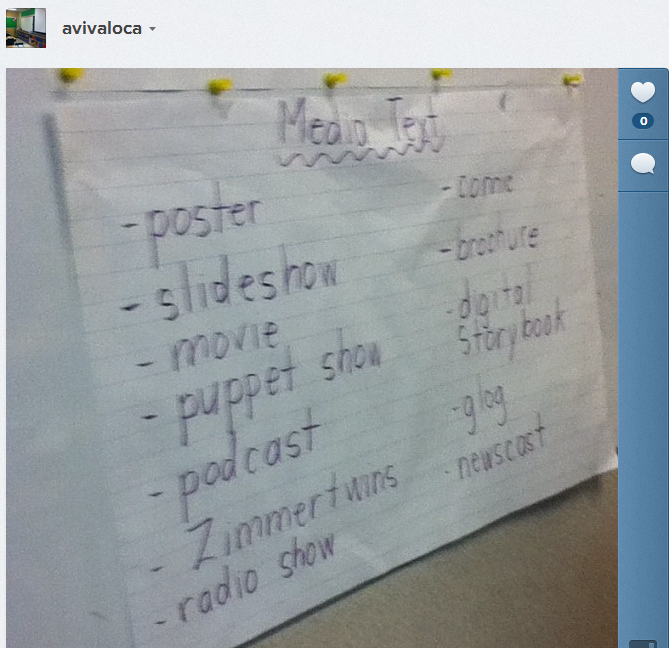 avivaloca
0
Media Text
- poster
- slideshow
- movie
- puppet show
- podcast
- Zimmertwins
- radio show
- comic
- brochure
- digital
storybook
- glog
- newscast